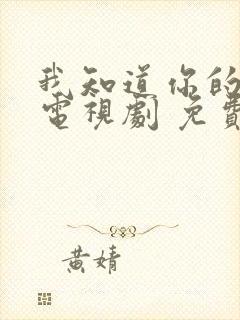 我知道你的
電視劇 免費
黃婧